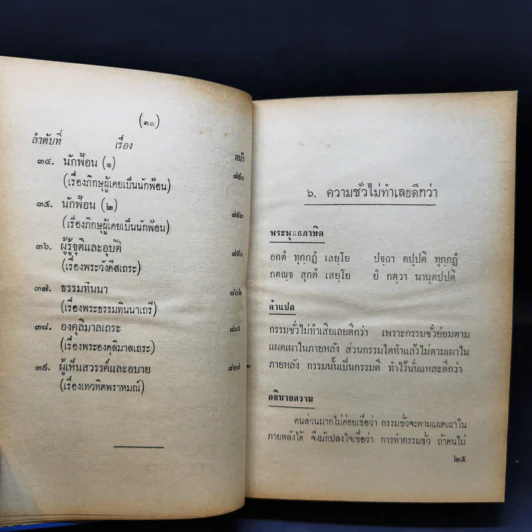 (๑๐)
ลำดับที่ เรื่อง หน้า
๓๔. นักฟ้อน (๑)
(เรื่องภิกษุผู้เคยเป็นนักฟ้อน)
๓๕. นักฟ้อน (๒)
(เรื่องภิกษุผู้เคยเป็นนักฟ้อน)
๓๖. ผู้รู้จุติและอุบัติ
(เรื่องพระวังคีสเถระ)
๓๗. ธรรมทินนา
(เรื่องพระธรรมทินนาเถรี)
๓๘. องคุลิมาลเถระ
(เรื่องพระองคุลิมาลเถระ)
๓๙. ผู้เห็นสวรรค์และอบาย
(เรื่องเทวหิตพราหมณ์)
๖. ความชั่วไม่ทำเลยดีกว่า
พระพุทธภาษิต
อกตํ ทุกฺกฏํ เสยฺโย ปจฺฉา ตปฺปติ ทุกฺกฏํ
กตญฺจ สุกตํ เสยฺโย ยํ กตฺวา นานุตปฺปติ
คำแปล
กรรมชั่วไม่ทำเสียเลยดีกว่า เพราะกรรมชั่วย่อมตาม
แผดเผาในภายหลัง ส่วนกรรมใดทำแล้วไม่ตามเผาใน
ภายหลัง กรรมนั้นเป็นกรรมดี ทำไว้นั่นแหละดีกว่า
อธิบายความ
คนส่วนมากไม่ค่อยเชื่อว่า กรรมชั่วจะตามแผดเผาใน
ภายหลังได้ จึงมักปลงใจเชื่อว่า การทำกรรมชั่ว ถ้าคนไม่
๒๕